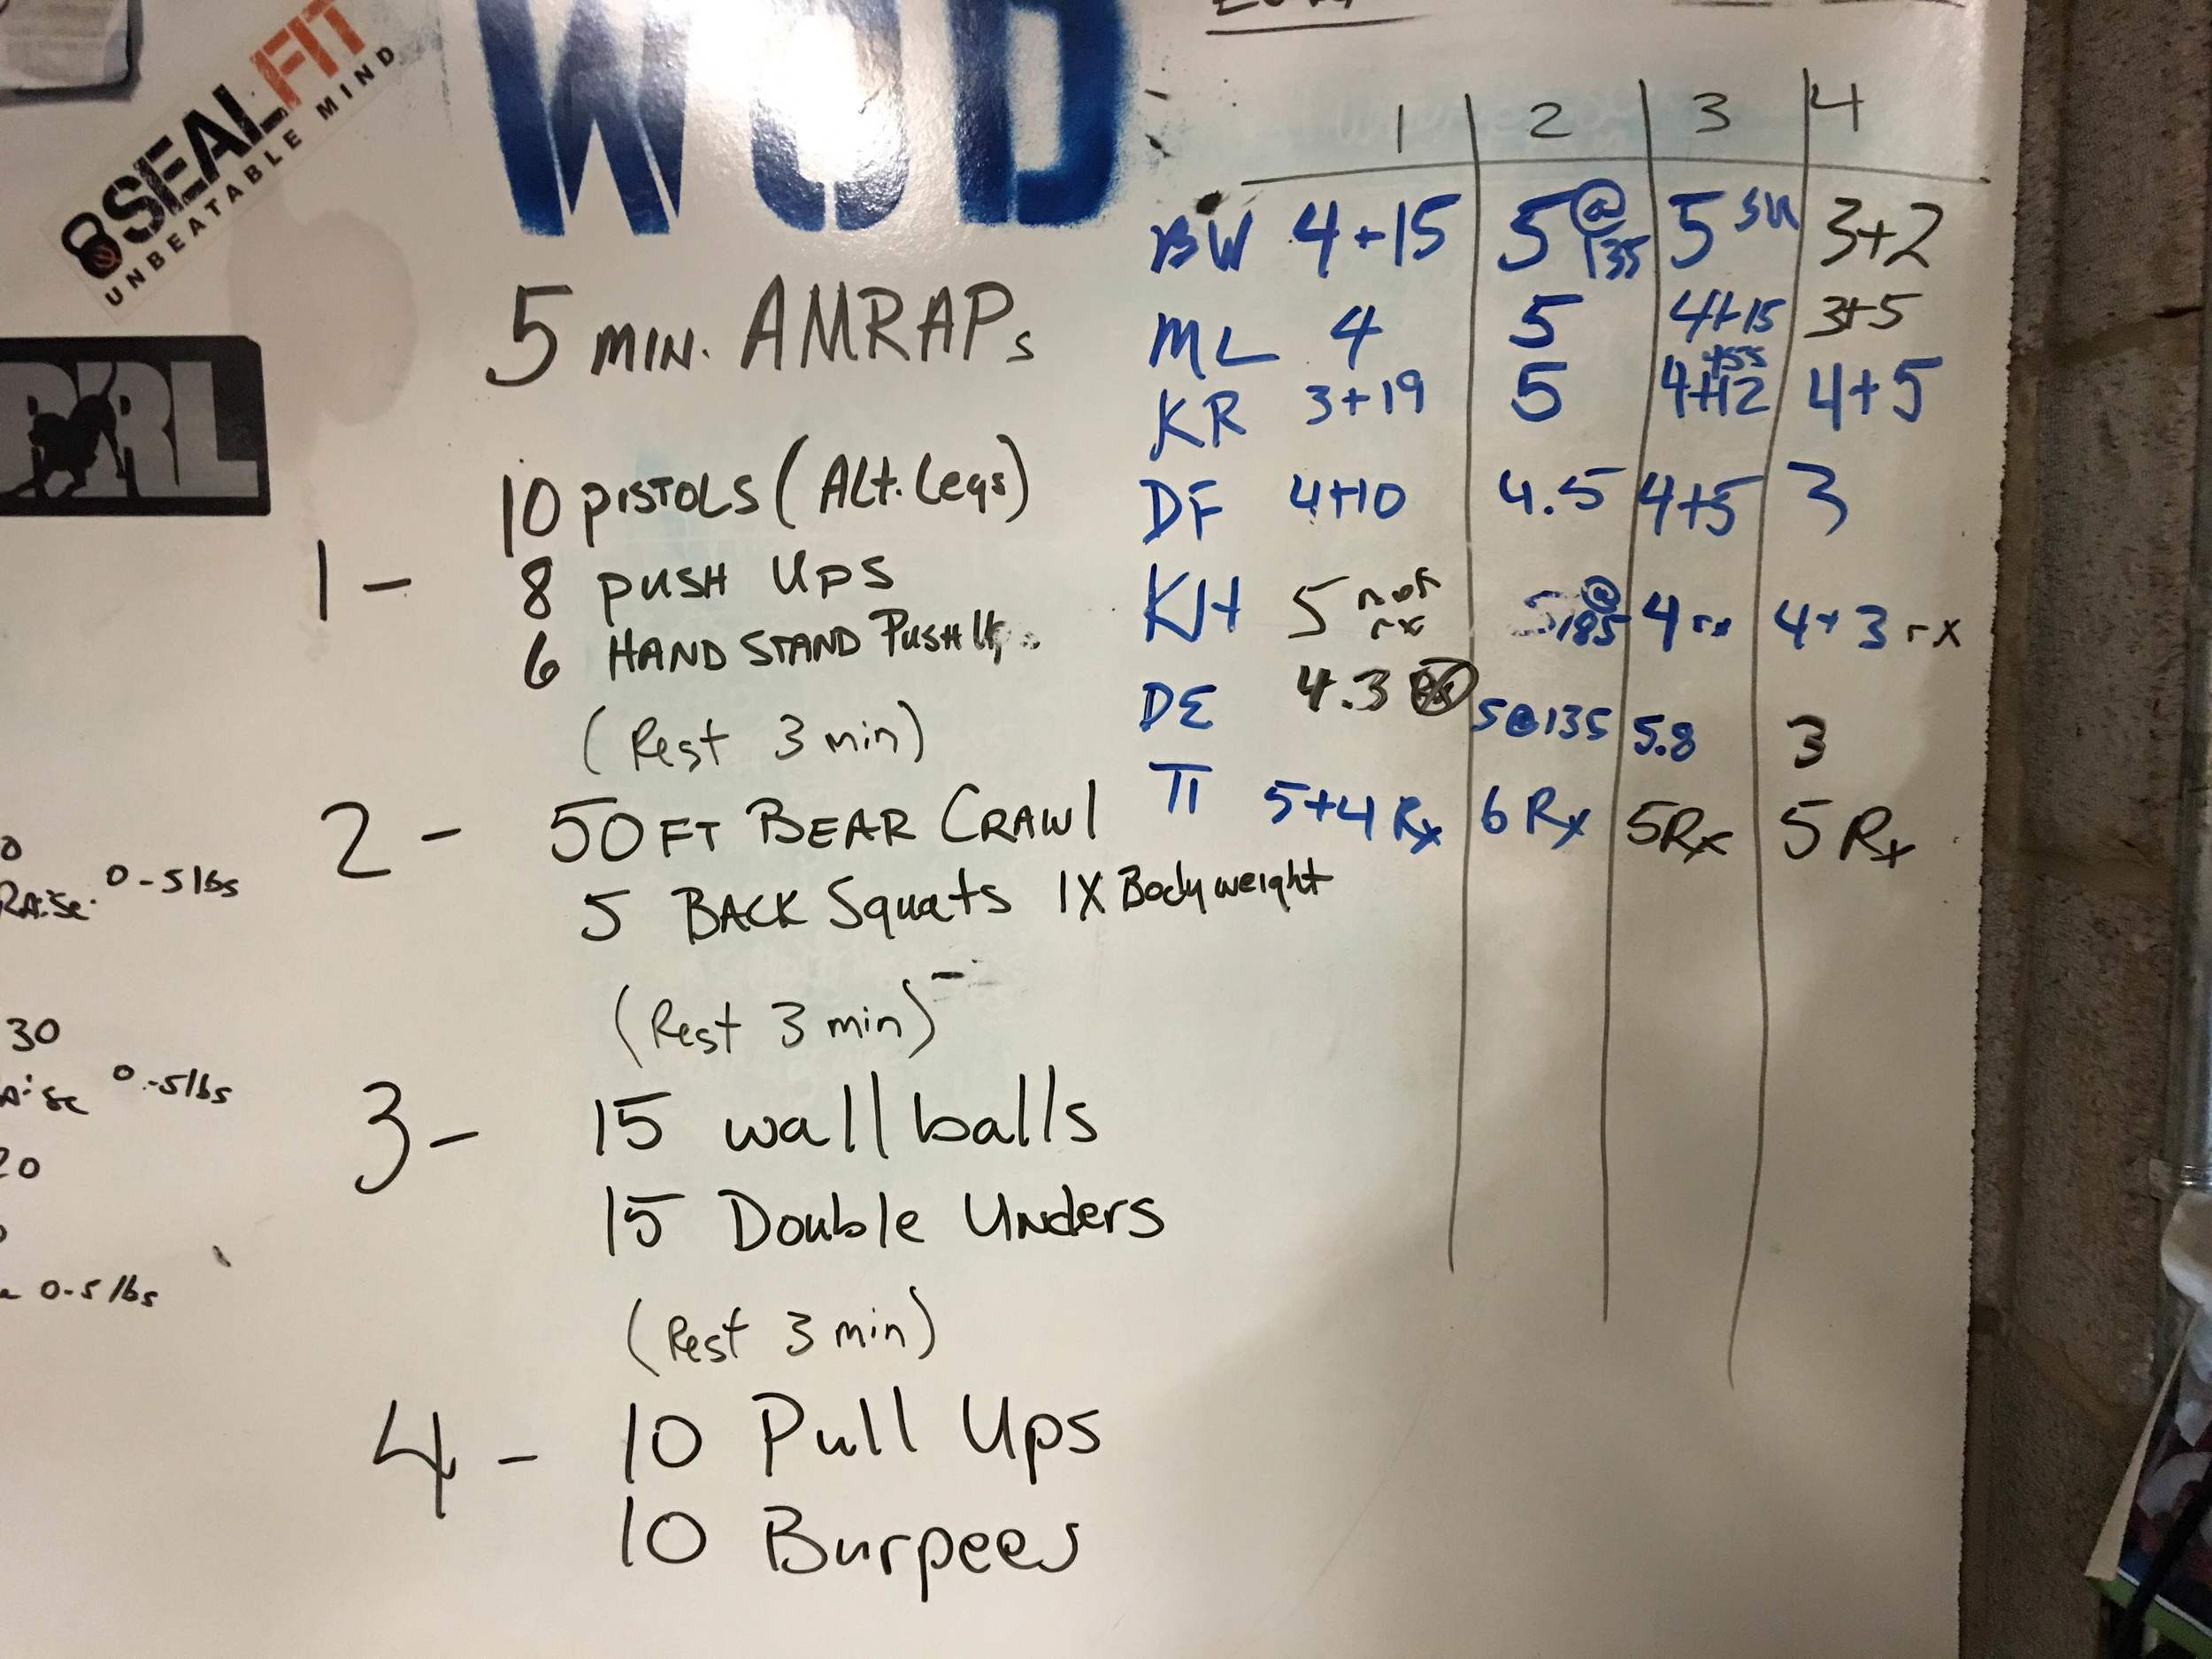 8SEALFIT
UNBEATABLE MIND
WOD
5 MIN. AMRAPs
1 -
10 PISTOLS (Alt. Legs)
8 PUSH UPS
6 HAND STAND PUSH
(Rest 3 min)
2 - 50 FT BEAR CRAWl
5 BACK Squats 1X Bodyweight
(Rest 3 min)
3 - 15 wall balls
15 Double Unders
(Rest 3 min)
4 - 10 Pull Ups
10 Burpees
1 2 3 4
BW 4+15 5 @135 5 SU 3+2
ML 4 5 4+15 3+5
KR 3+19 5 4+12 4+5
DF 4+10 4.5 4+5 3
KH 5 not rx 5 @185 4 rx 4+3 rx
DE 4.3 5@135 5.8 3
TI 5+4 Rx 6 Rx 5Rx 5 Rx
0-5 lbs
RAise
30
0-5 lbs
20
0-5 lbs